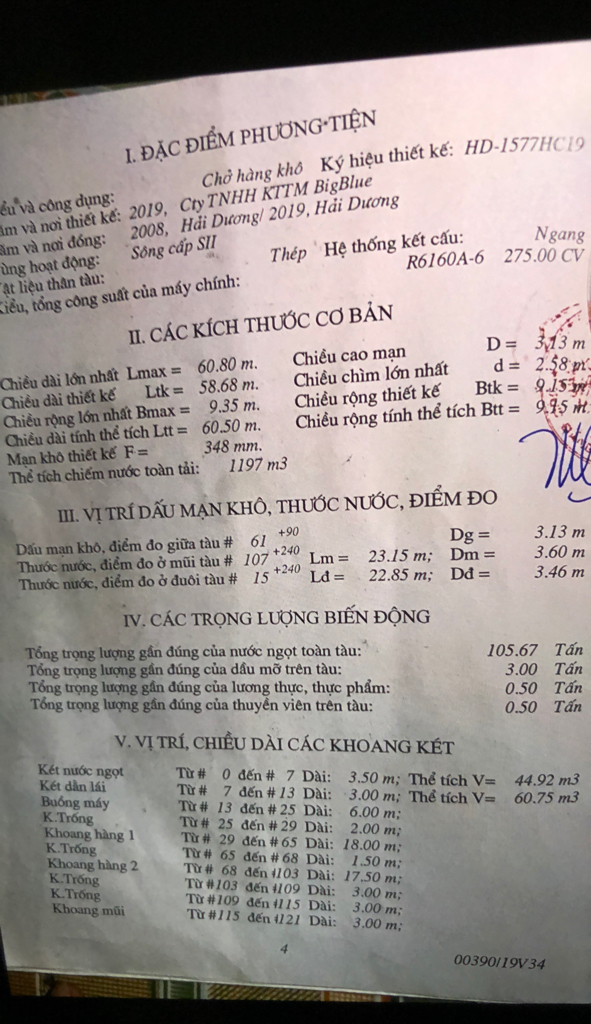 I. ĐẶC ĐIỂM PHƯƠNG TIỆN
ểu và công dụng: Chở hàng khô Ký hiệu thiết kế: HD-1577HC19
ăm và nơi thiết kế: 2019, Cty TNHH KTTM BigBlue
ăm và nơi đóng: 2008, Hải Dương/ 2019, Hải Dương
ùng hoạt động: Sông cấp SII
ật liệu thân tàu: Thép Hệ thống kết cấu: Ngang
Kiểu, tổng công suất của máy chính: R6160A-6 275.00 CV
II. CÁC KÍCH THƯỚC CƠ BẢN
Chiều dài lớn nhất Lmax = 60.80 m. Chiều cao mạn D = 3.13 m
Chiều dài thiết kế Ltk = 58.68 m. Chiều chìm lớn nhất d = 2.58 m
Chiều rộng lớn nhất Bmax = 9.35 m. Chiều rộng thiết kế Btk = 9.15 m
Chiều dài tính thể tích Ltt = 60.50 m. Chiều rộng tính thể tích Btt = m
Mạn khô thiết kế F = 348 mm.
Thể tích chiếm nước toàn tải: 1197 m3
III. VỊ TRÍ DẤU MẠN KHÔ, THƯỚC NƯỚC, ĐIỂM ĐO
Dấu mạn khô, điểm đo giữa tàu # 61 +90 Dg = 3.13 m
Thước nước, điểm đo ở mũi tàu # 107 +240 Lm = 23.15 m; Dm = 3.60 m
Thước nước, điểm đo ở đuôi tàu # 15 +240 Lđ = 22.85 m; Dđ = 3.46 m
IV. CÁC TRỌNG LƯỢNG BIẾN ĐỘNG
Tổng trọng lượng gần đúng của nước ngọt toàn tàu: 105.67 Tấn
Tổng trọng lượng gần đúng của dầu mỡ trên tàu: 3.00 Tấn
Tổng trọng lượng gần đúng của lương thực, thực phẩm: 0.50 Tấn
Tổng trọng lượng gần đúng của thuyền viên trên tàu: 0.50 Tấn
V. VỊ TRÍ, CHIỀU DÀI CÁC KHOANG KÉT
Két nước ngọt Từ # 0 đến # 7 Dài: 3.50 m; Thể tích V= 44.92 m3
Két dằn lái Từ # 7 đến # 13 Dài: 3.00 m; Thể tích V= 60.75 m3
Buồng máy Từ # 13 đến # 25 Dài: 6.00 m;
K.Trống Từ # 25 đến # 29 Dài: 2.00 m;
Khoang hàng 1 Từ # 29 đến # 65 Dài: 18.00 m;
K.Trống Từ # 65 đến # 68 Dài: 1.50 m;
Khoang hàng 2 Từ # 68 đến #103 Dài: 17.50 m;
K.Trống Từ #103 đến #109 Dài: 3.00 m;
K.Trống Từ #109 đến #115 Dài: 3.00 m;
Khoang mũi Từ #115 đến #121 Dài: 3.00 m;
4
00390/19V34